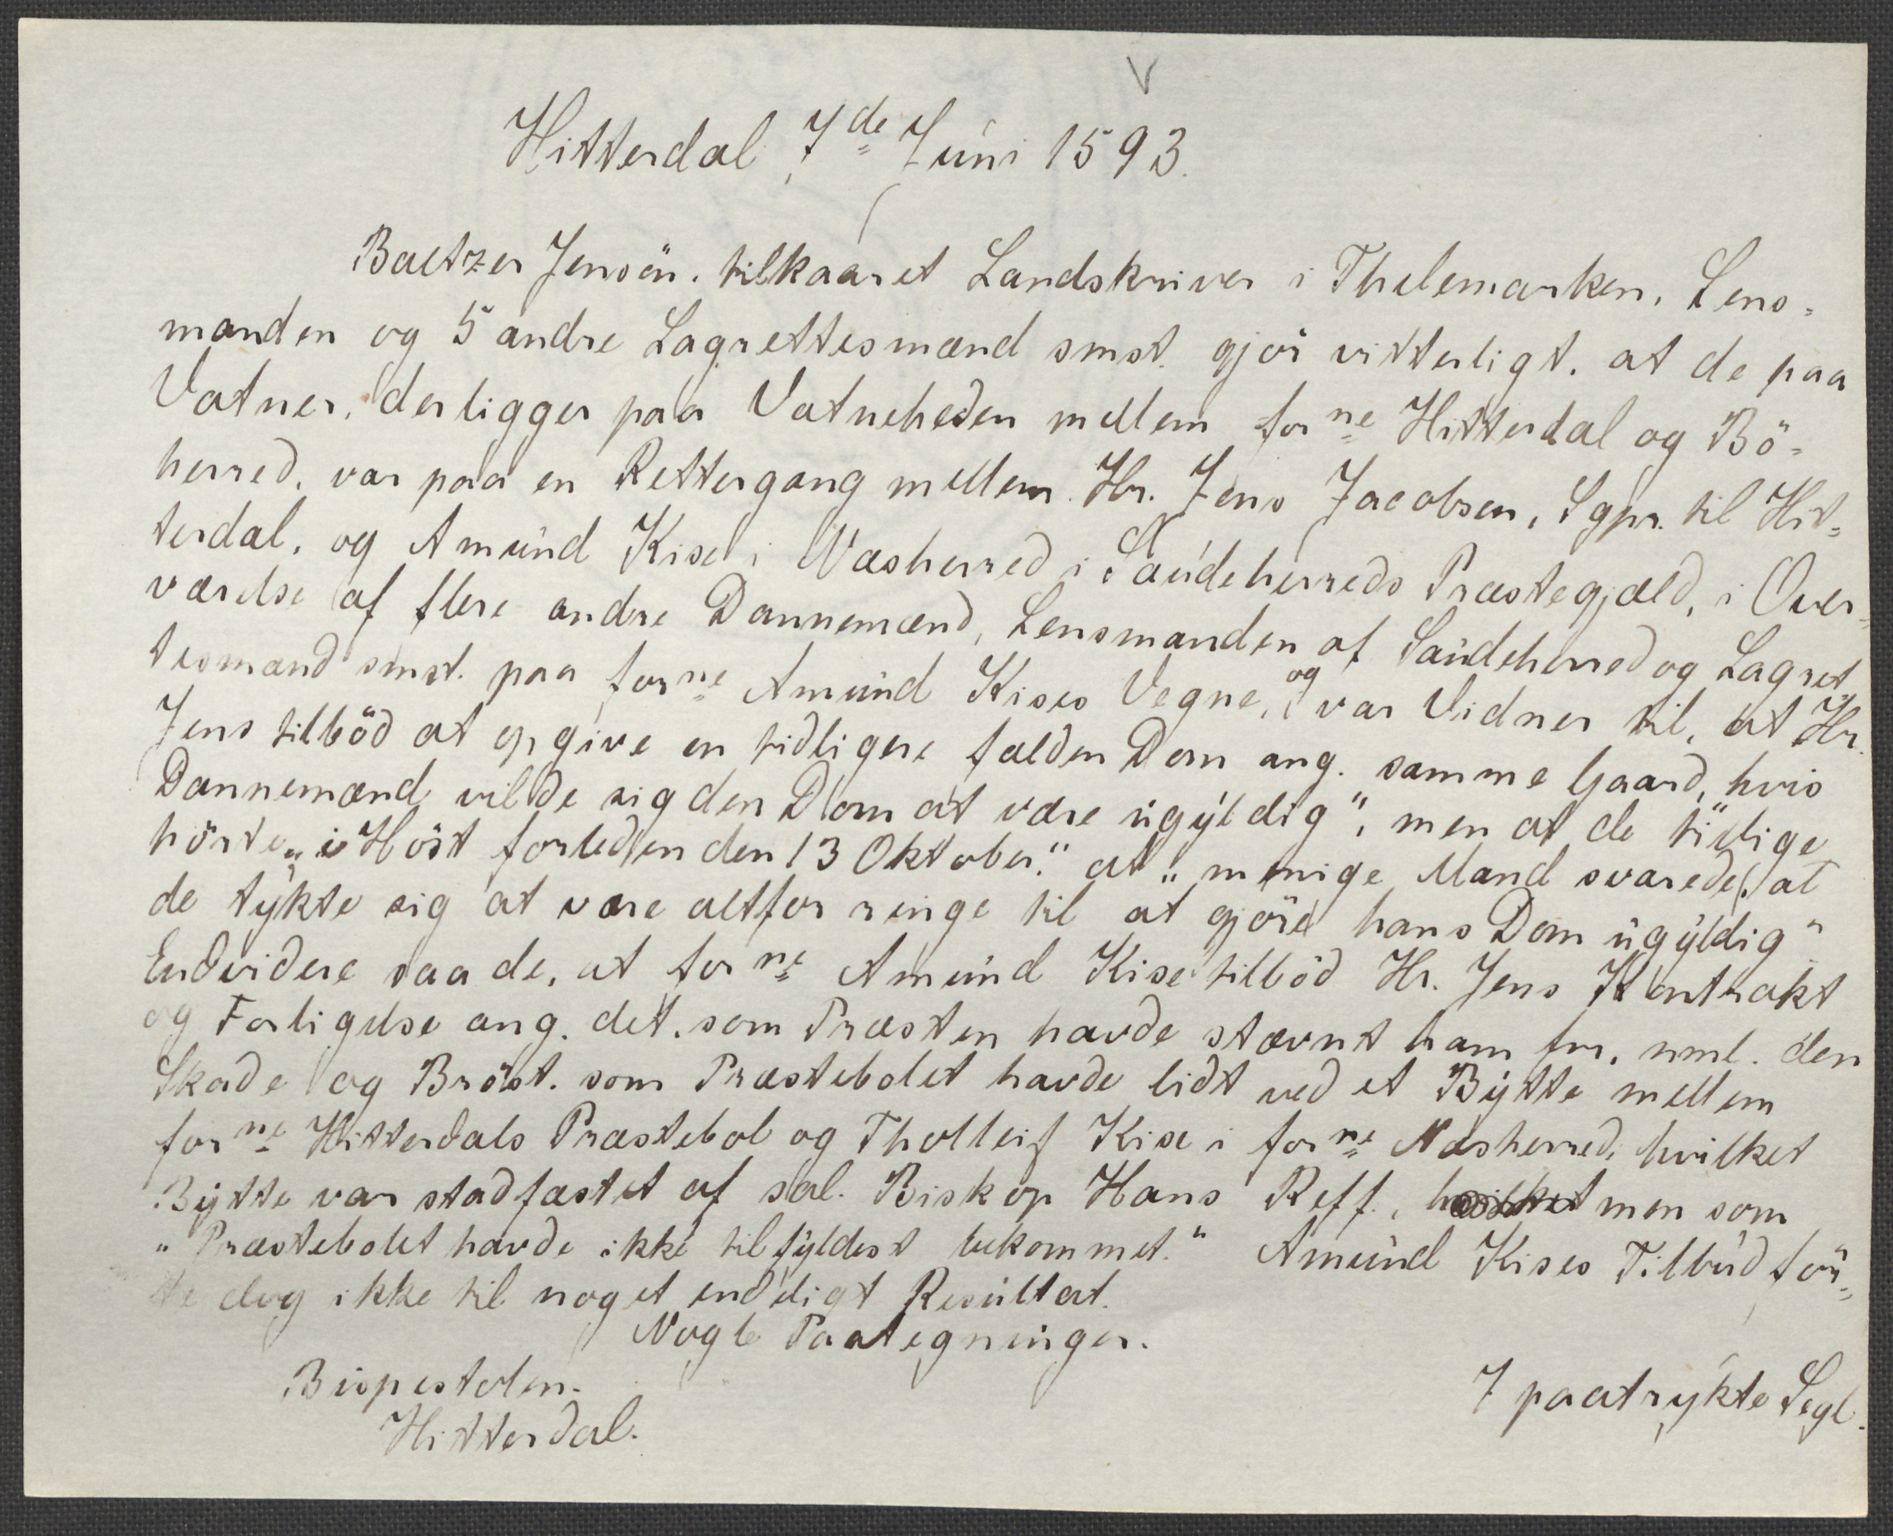 Hitterdal 7de Juni 1593.
Baltzer Jensön, tilkaaret Landskriver i Thelemarken, Lens-
manden og 5 andre Lagrettesmænd smst. gjör vitterligt, at de paa
Vatner, der ligger paa Vatneheden mellem forne Hitterdal og Bö-
herred, var paa en Rettergang mellem Hr. Jens Jacobsen, Sgpr. til Hit-
terdal, og Amund Kise i Næsherred i Saudeherreds Præstegjæld, i Over-
værelse af flere andre Dannemænd, Lensmanden af Saudeherred og Lagret-
tesmænd smst. paa forne Amund Kises Vegne, og var Vidner til, at Hr.
Jens tilböd at opgive en tidligere falden Dom ang. samme Gaard, hvis
Dannemænd vilde sig den Dom at være ugyldig", men at de tillige
hörte „i Höst forleden den 13 Oktober." at „menige Mand svarede, at
de tykte sig at være altfor ringe til at gjöre hans Dom ugyldig"
Endvidere saa de, at forne Amund Kise tilböd Hr. Jens Kontrakt
og Forligelse ang. det, som Præsten havde stævnt ham for, nml. den
Skade og Bröst, som Præstebolet havde lidt ved et Bytte mellem
forne Hitterdals Præstebol og Tholleif Kise i forne Næsherred, hvilket
Bytte var stadfæstet af sal. Biskop Hans Reff., men som
„Præstebolet havde ikke tilfyldest bekommet." Amund Kises Tilbud för-
te dog ikke til noget endeligt Resultat.
Nogle Paategninger.
Bispestolen.
Hitterdal.
7 paatrykte Segl.